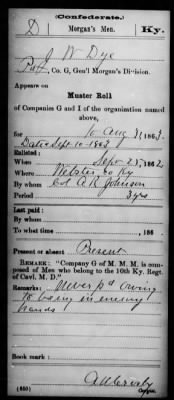 (Confederate.)
D Morgan's Men. Ky.
J W Dye
Pvt, Co. G, Gen'l Morgan's Division.
Appears on
Muster Roll
of Companies G and I of the organization named
above,
for to Aug 31, 1863.
Dated Sept 10 1863
Enlisted:
When Sept 25, 1862
Where Webster Co Ky
By whom Col A R Johnson
Period 3 yrs
Last paid:
By whom
To what time , 186
Present or absent Present
REMARK: "Company G of M. M. M. is com-
posed of Men who belong to the 10th Ky. Regt.
of Cavl. M. D."
Remarks: Never pd owing
to being in enemy
hands
Book mark:
(650) Copyist.